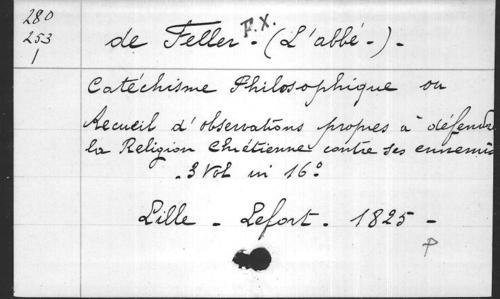 280
253
1
de Feller F.X. (L'abbé-)-
Catéchisme Philosophique ou
Recueil d'observations propres à défendre
la Religion Chrétienne contre ses ennemis
. 3 Vol in 16°
Lille - Lefort - 1825 -
P